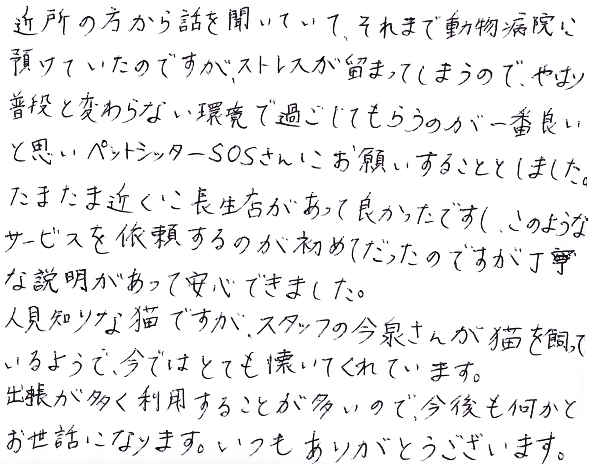 近所の方から話を聞いていて、それまで動物病院に
預けていたのですが、ストレスが留まってしまうので、やはり
普段と変わらない環境で過ごしてもらうのが一番良い
と思いペットシッターSOSさんにお願いすることとしました。
たまたま近くに長生店があって良かったですし、このような
サービスを依頼するのが初めてだったのですが丁寧
な説明があって安心できました。
人見知りな猫ですが、スタッフの今泉さんが猫を飼って
いるようで、今ではとても懐いてくれています。
出張が多く利用することが多いので、今後も何かと
お世話になります。いつもありがとうございます。